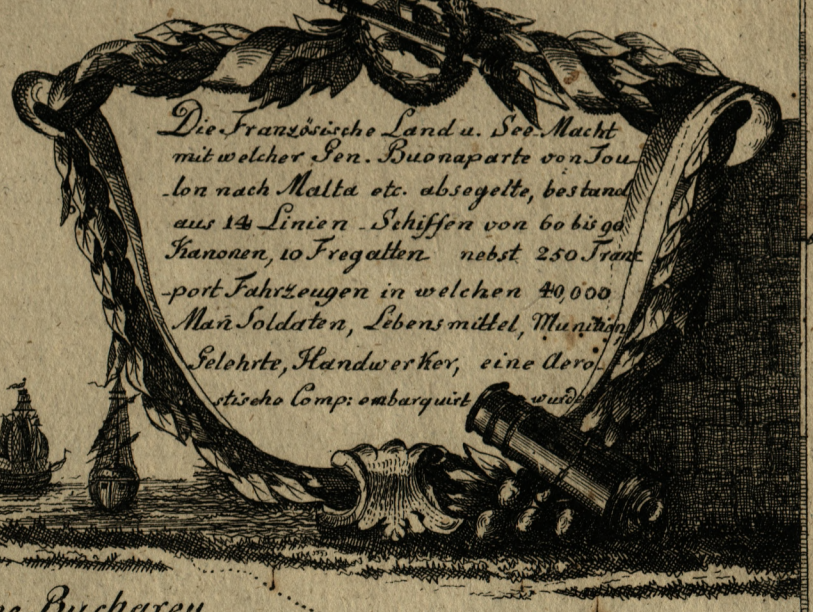 Die Französische Land u. See-Macht
mit welcher Gen. Buonaparte von Tou
-lon nach Malta etc. absegelte, bestand
aus 14 Linien-Schiffen von 60 bis 90
Kanonen, 10 Fregatten nebst 250 Trans
-port Fahrzeugen in welchen 40,000
Mañ Soldaten, Lebensmittel, Munition,
Gelehrte, Handwerker, eine Aero-
stische Comp: embarquirt wurde
Bucharey